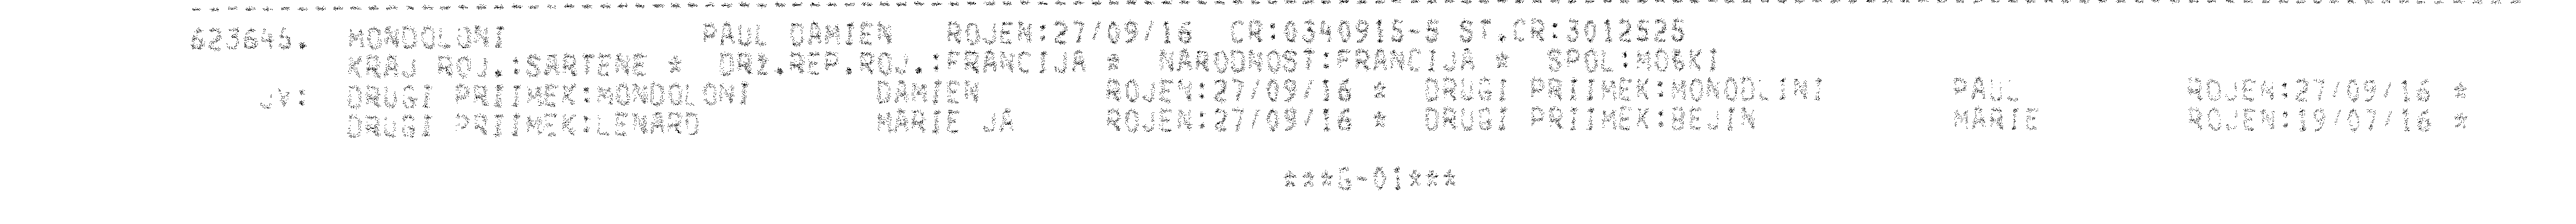 623645. MONDOLONI PAUL DAMIEN ROJEN:27/09/16 CR:0340915-5 ST.CR:3012525
KRAJ ROJ.:SARTENE * DRŽ.REP.ROJ.:FRANCIJA * NARODNOST:FRANCIJA * SPOL:MOŠKI
JV: DRUGI PRIIMEK:MONDOLONI DAMIEN ROJEN:27/09/16 * DRUGI PRIIMEK:MONODLINI PAUL ROJEN:27/09/16 *
DRUGI PRIIMEK:LENARD MARIE JA ROJEN:27/09/16 * DRUGI PRIIMEK:BEJIN MARIE ROJEN:19/07/16 *
***G-01***